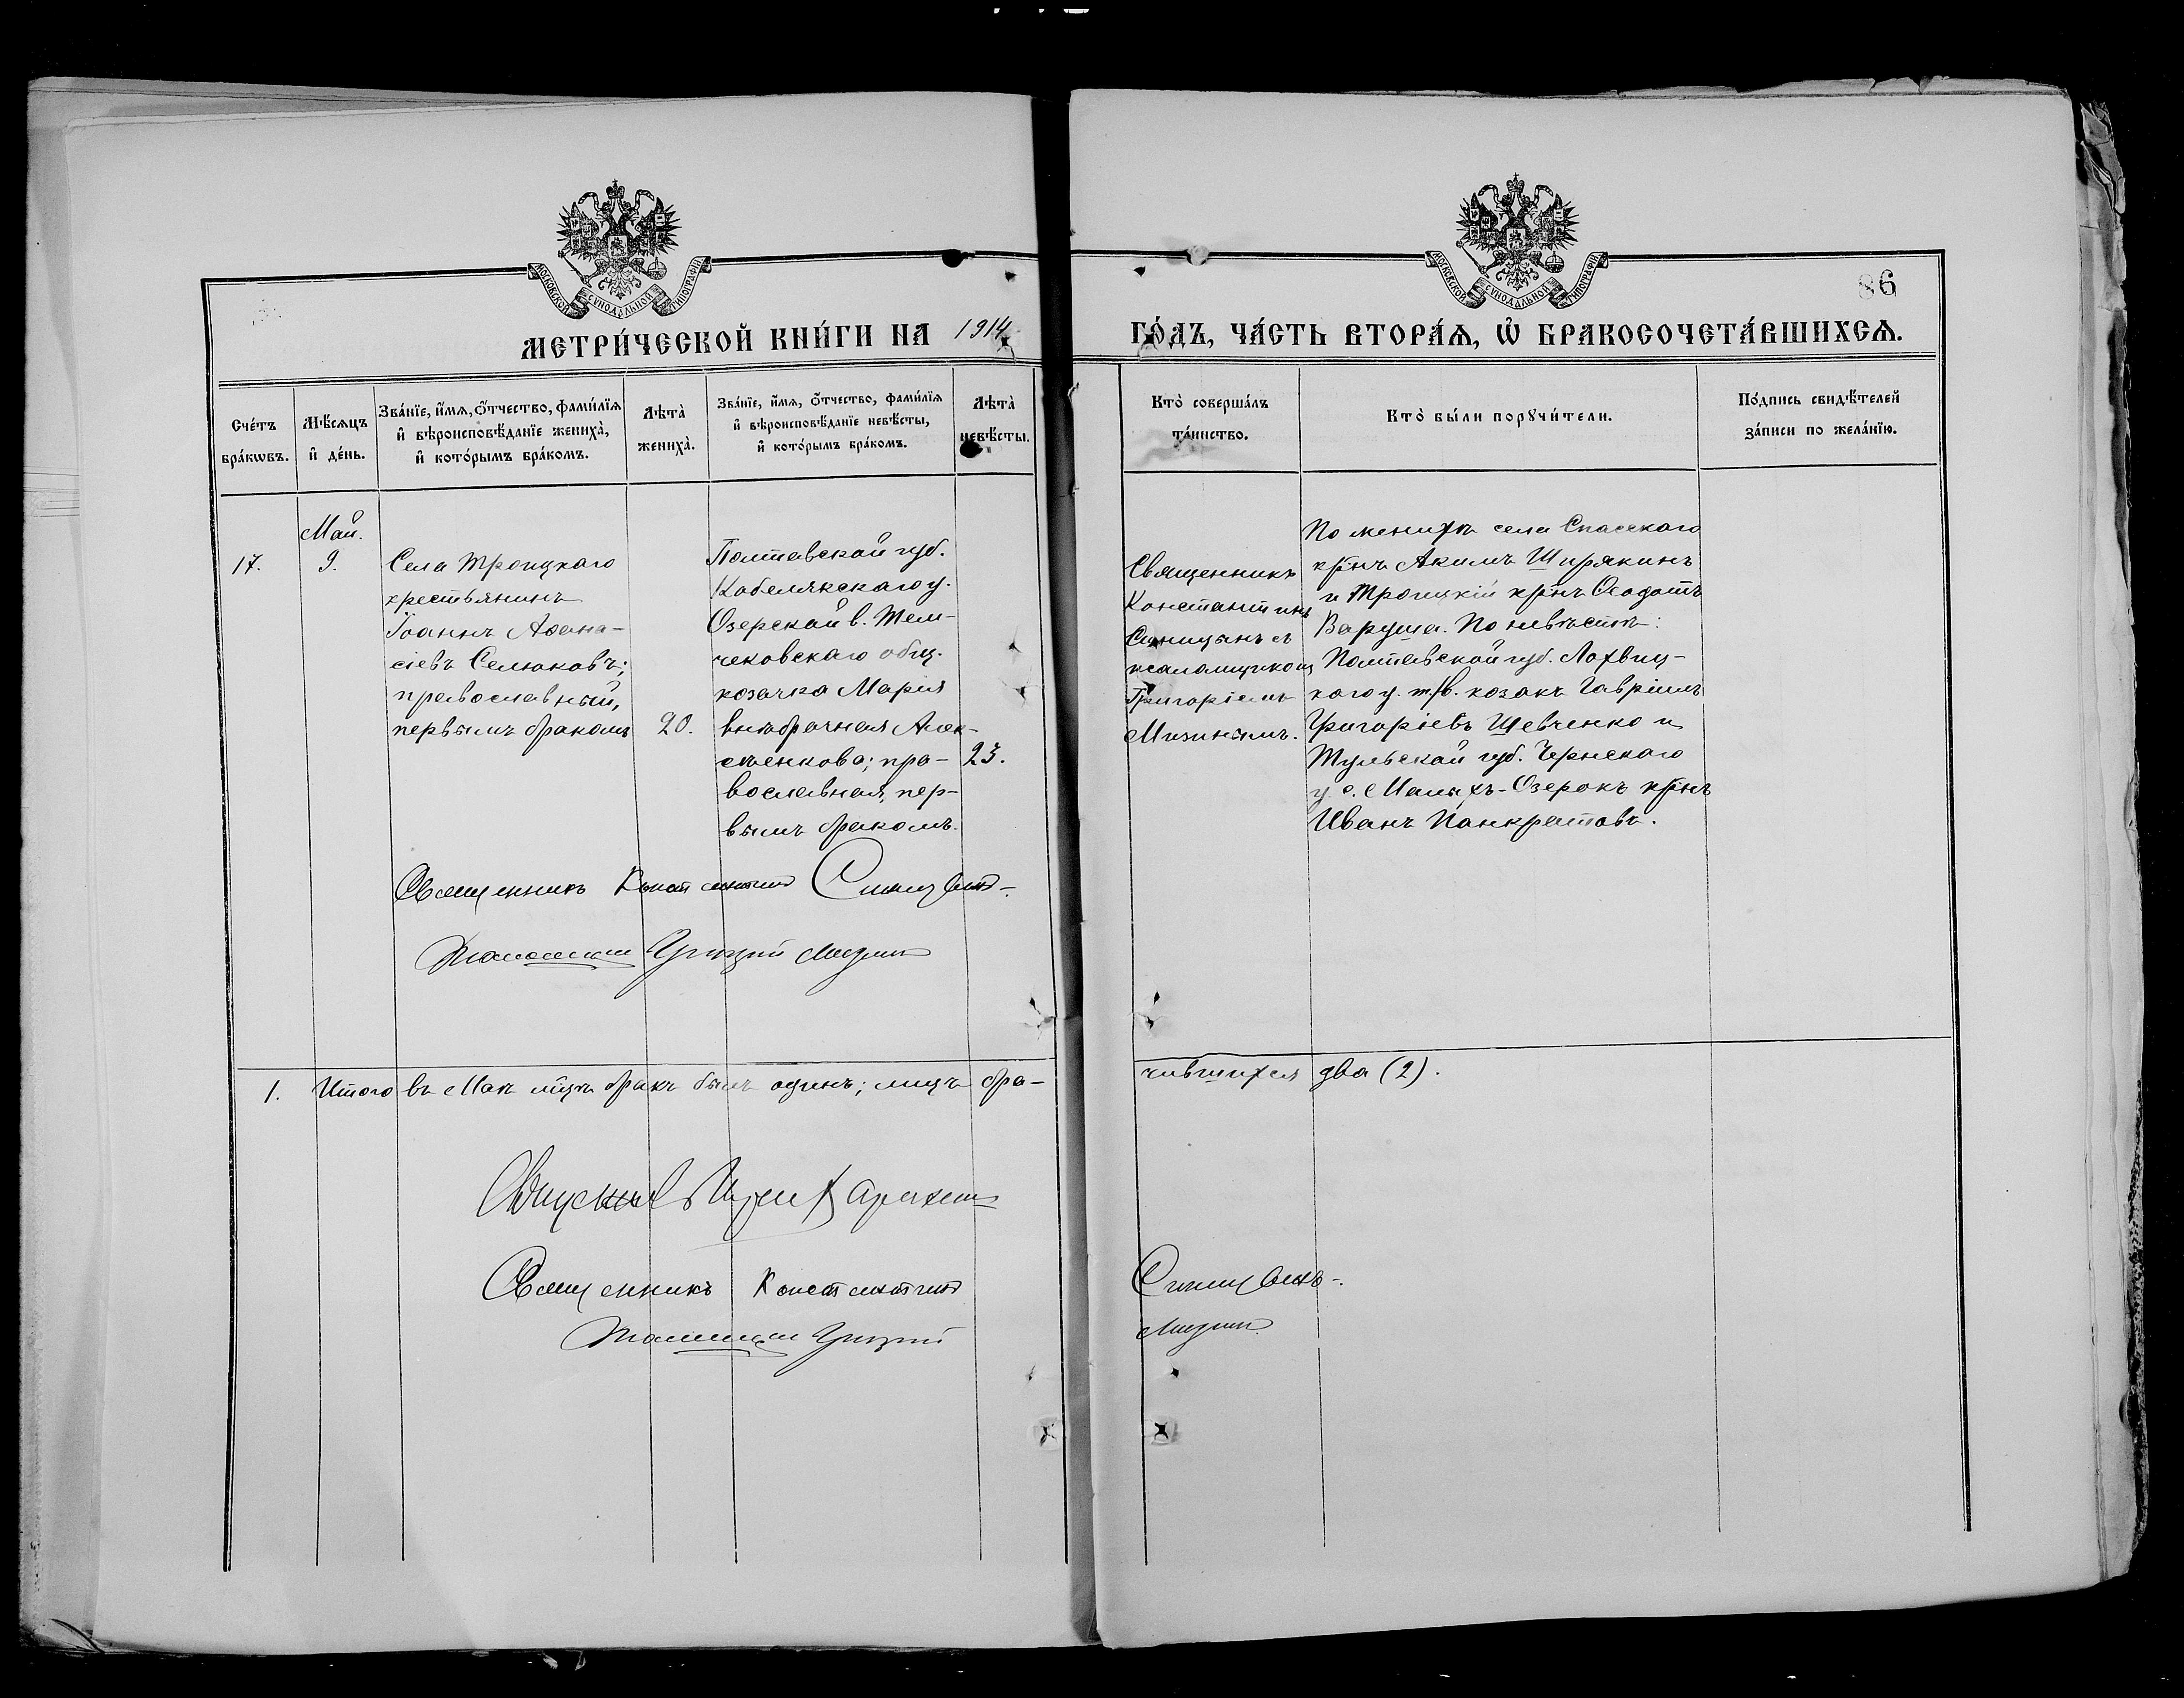 МОСКОВСКОЙ СѴНОДАЛЬНОЙ ТИПОГРАФІИ
МОСКОВСКОЙ СѴНОДАЛЬНОЙ ТИПОГРАФІИ
86
МЕТРИ́ЧЕСКОЙ КНИ́ГИ НА 1914 ГО́ДЪ, ЧА́СТЬ ВТОРА́Ѧ, Ѿ БРАКОСОЧЕТА́ВШИХСѦ.
Сче́тъ бра́кѡвъ.
Мѣ́сѧцъ и҆ де́нь.
Зва́нїе, и҆́мѧ, ѻ҆́тчество, фами́лїѧ
и҆ вѣроисповѣ́данїе жениха̀,
и҆ кото́рымъ бра́комъ.
Лѣта̀ жениха̀.
Зва́нїе, и҆́мѧ, ѻ҆́тчество, фами́лїѧ
и҆ вѣроисповѣ́данїе невѣ́сты,
и҆ кото́рымъ бра́комъ.
Лѣта̀ невѣ́сты.
Кто̀ соверша́лъ
та́инство.
Кто̀ бы́ли порꙋчи́тели.
По́дпись свидѣ́телей
за́писи по жела́нїю.
17.
Май.
9.
Села Троицкаго
крестьянинъ
Іоаннъ Аѳана-
сіевъ Селюковъ;
православный,
первымъ бракомъ
20.
Полтавской губ.
Кобелякскаго у.
Озерской в.
чековскаго общ.
козачка Марія
внѣбрачная Алек-
сѣенкова; пра-
вославная, пер-
вымъ бракомъ.
23.
Священникъ
Константинъ
Синицынъ съ
псаломщикомъ
Григоріемъ
Мизинымъ.
По женихѣ села Спасскаго
кр͠нъ Акимъ Ширякинъ
и Троицкій кр͠нъ Ѳеодотъ
Варуша. По невѣстѣ:
Полтавской губ. Лохвиц-
каго у. т/в. козакъ Гавріилъ
Григоріевъ Шевченко и
Тульской губ. Чернскаго
у. с. Малыхъ-Озерокъ кр͠нъ
Иванъ Панкратовъ.
Священникъ Константинъ Синицынъ.
Псаломщик Григорій Мизин
1. Итого въ Маѣ м͠цѣ бракъ былъ одинъ; лицъ бра-
чившихся два (2).
Священникъ Константинъ Синицынъ.
Псаломщик Григорій Мизин